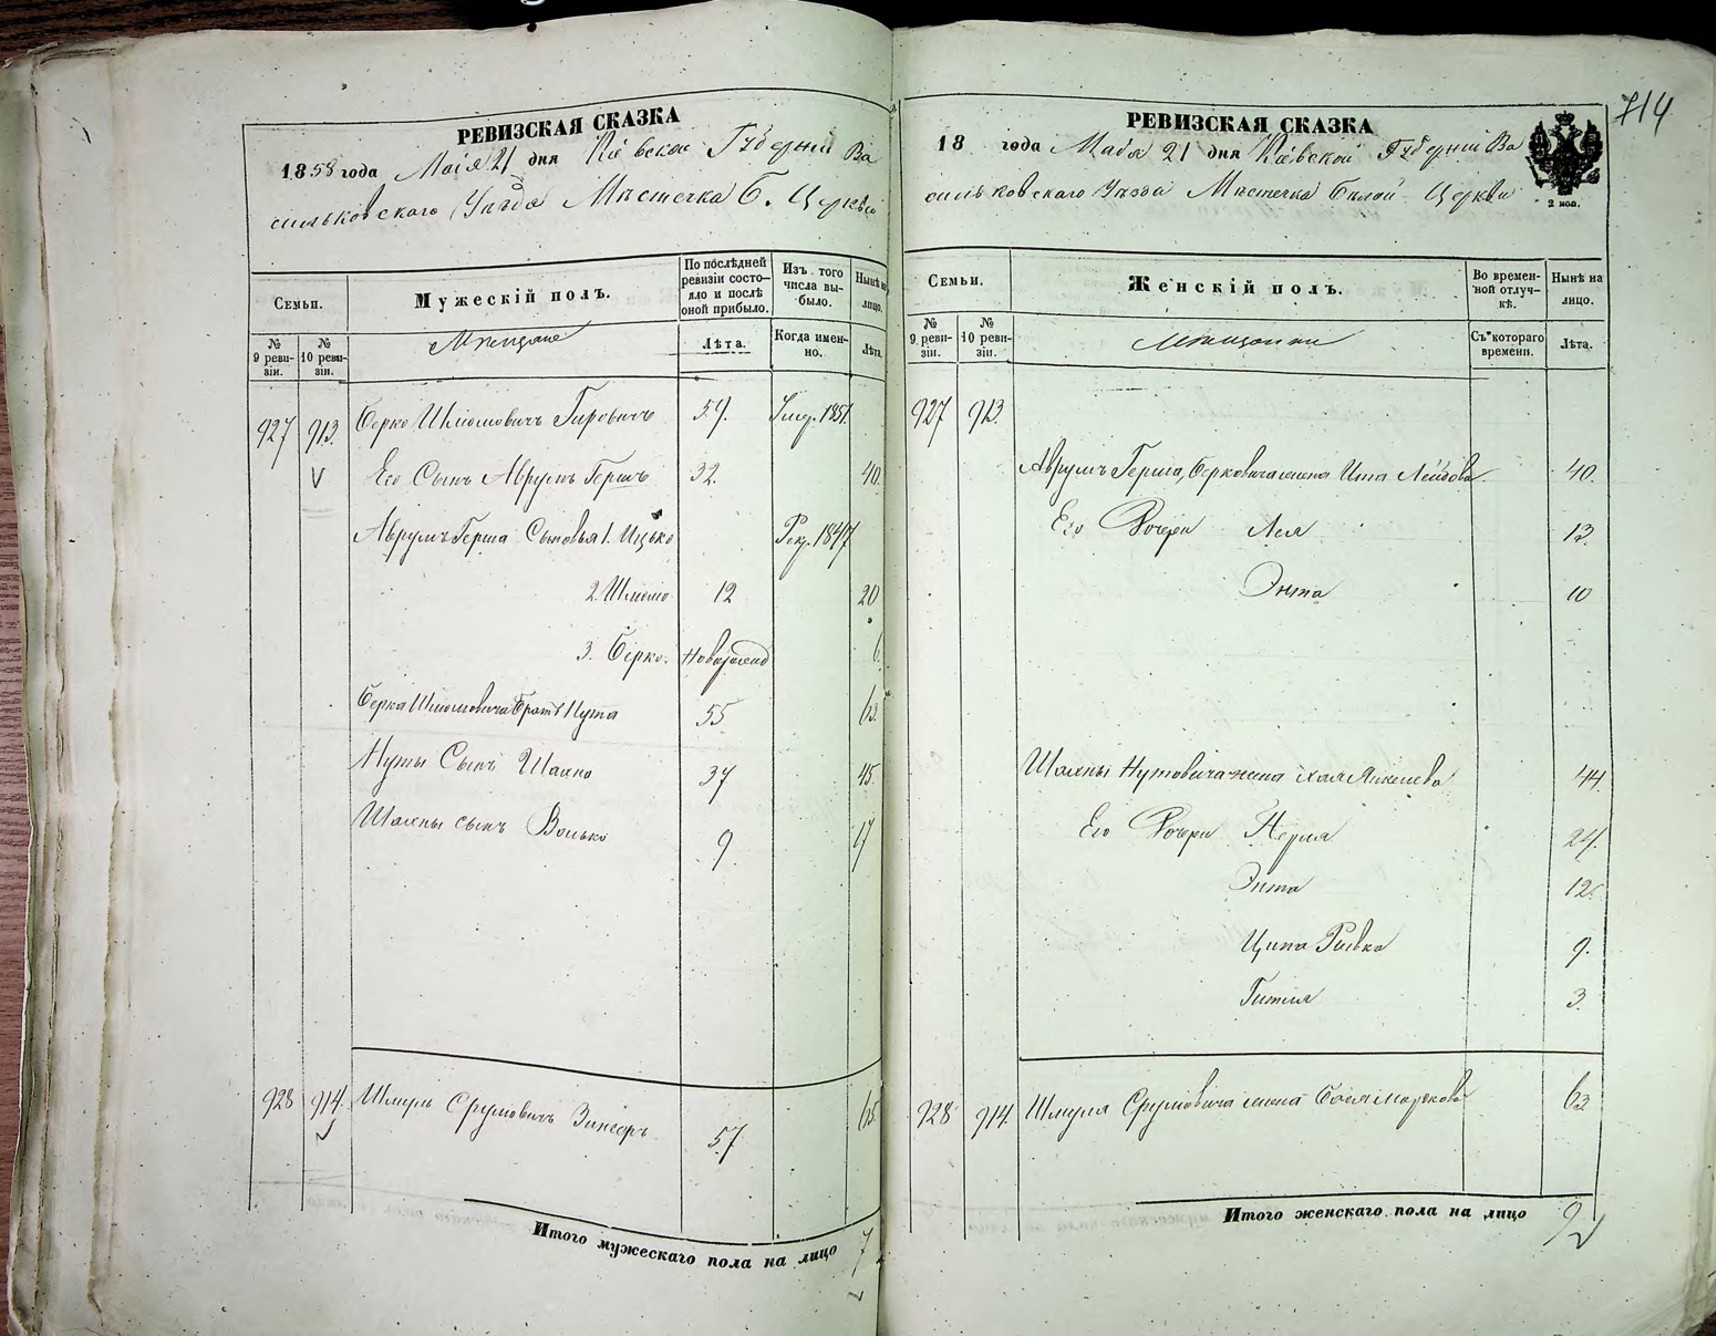 714
РЕВИЗСКАЯ СКАЗКА
1858 года Маія 21 дня Кіевской Губерніи Ва
сильковскаго Уѣзда Мѣстечка Б. Церкви
Семьи.
Мужескій полъ.
По послѣдней ревизіи состояло и послѣ оной прибыло.
Изъ того числа выбыло.
Нынѣ на лицо.
№ 9 ревизіи.
№ 10 ревизіи.
Мѣщане
Лѣта.
Когда именно.
Лѣта.
927 913 Берко Шлиомовичъ 59. Умер. 1851
Его Сынъ Аврумъ Гершъ 32. 40.
Аврумъ Герша Сыновья 1. Ицько Рек. 1847
2. Шлиомо 12 20
3. Берко. Новорожд 6.
Берка Шлиомовича братъ Нута 55 63
Нуты Сынъ Шахно 37 45
Шахны сынъ Волько 9 17
928 914. Шмуль Срулювичъ 57 65
Итого мужескаго пола на лицо 7
РЕВИЗСКАЯ СКАЗКА
18 года Маія 21 дня Кіевской Губерніи Ва
сильковскаго Уѣзда Мѣстечка Бѣлой Церкви
2 пол.
Семьи.
Женскій полъ.
Во временной отлучкѣ.
Нынѣ на лицо.
№ 9 ревизіи.
№ 10 ревизіи.
Мѣщанки
Съ котораго времени.
Лѣта.
927 913.
Аврумъ Герша Берковича жена Ита Лейбова 40.
Его Дочери Лея 13.
Энта 10
Шахны Нутовича жена Хая Янкелева 44.
Его Дочери Перля 24.
Энта 12.
Ципа Ривка 9.
Гитля 3.
928 914. Шмуля Срулювича жена 63
Итого женскаго пола на лицо 9